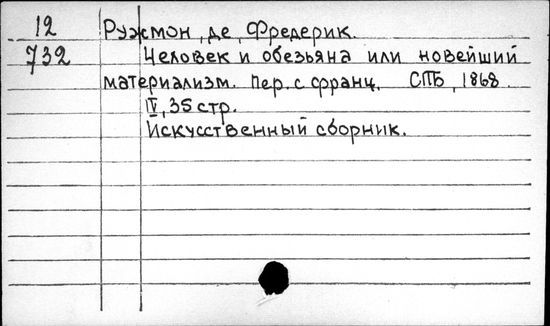 12 Ружмон, де, Фредерик.
732 Человек и обезьяна или новейший
материализм. Пер. с франц. СПБ, 1868.
IV, 35 стр.
Искусственный сборник.